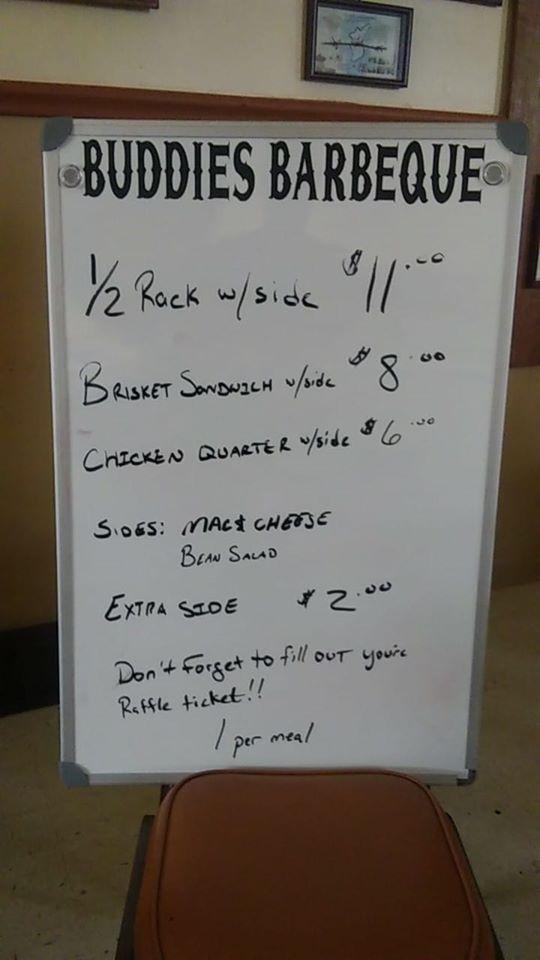 BUDDIES BARBEQUE
1/2 Rack w/side $11.00
BRISKET SANDWICH w/side $8.00
CHICKEN QUARTER w/side $6.00
SIDES: MAC & CHEESE
BEAN SALAD
EXTRA SIDE $2.00
Don't Forget to fill out you're
Raffle ticket!!
1 per meal